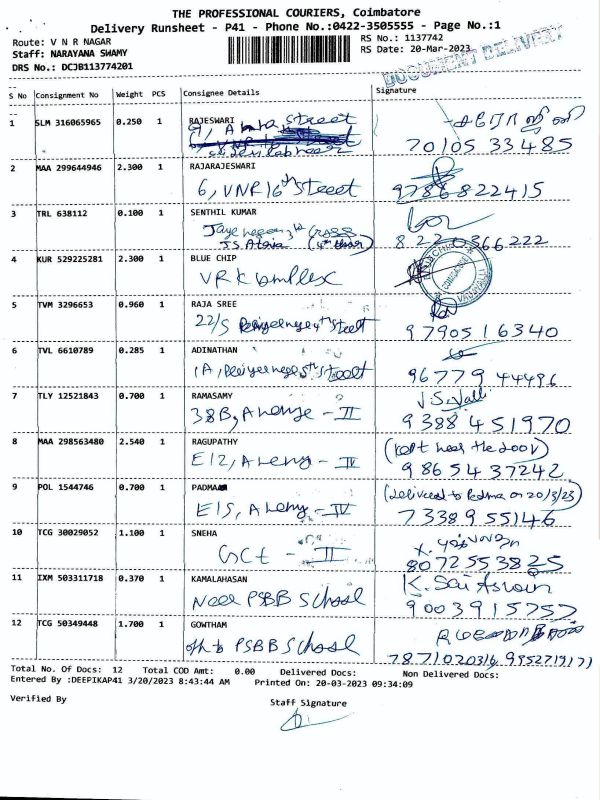 THE PROFESSIONAL COURIERS, Coimbatore
Delivery Runsheet - P41 - Phone No.:0422-3505555 - Page No.:1
Route: V N R NAGAR
RS No.: 1137742
Staff: NARAYANA SWAMY
RS Date: 20-Mar-2023
DRS No.: DCJB113774201
DOCUMENT DELIVERY
S No Consignment No Weight PCS Consignee Details Signature
1 SLM 316065965 0.250 1 RAJESWARI
street
சரோஜினி
70105 33485
2 MAA 299644946 2.300 1 RAJARAJESWARI
6, VNR 16th street
9786822415
3 TRL 638112 0.100 1 SENTHIL KUMAR
cross
8220366222
4 KUR 529225281 2.300 1 BLUE CHIP
VRK Complex
5 TVM 3296653 0.960 1 RAJA SREE
22/5 street
9790516340
6 TVL 6610789 0.285 1 ADINATHAN
1A, street
96779 44496
7 TLY 12521843 0.700 1 RAMASAMY
38B, - II
J.S. Valli
9388 451970
8 MAA 298563480 2.540 1 RAGUPATHY
E12, - IV
(kept near the door)
9865437242
9 POL 1544746 0.700 1 PADMA
E15, - IV
(delivered to Padma on 20/3/23)
73389 55146
10 TCG 30029052 1.100 1 SNEHA
GCT - II
8072553825
11 IXM 503311718 0.370 1 KAMALAHASAN
Near PSBB School
K. Sai Aswin
9003915757
12 TCG 50349448 1.700 1 GOWTHAM
opp to PSBB School
7871020316, 9952719171
Total No. Of Docs: 12 Total COD Amt: 0.00 Delivered Docs: Non Delivered Docs:
Entered By :DEEPIKAP41 3/20/2023 8:43:44 AM Printed On: 20-03-2023 09:34:09
Verified By
Staff Signature